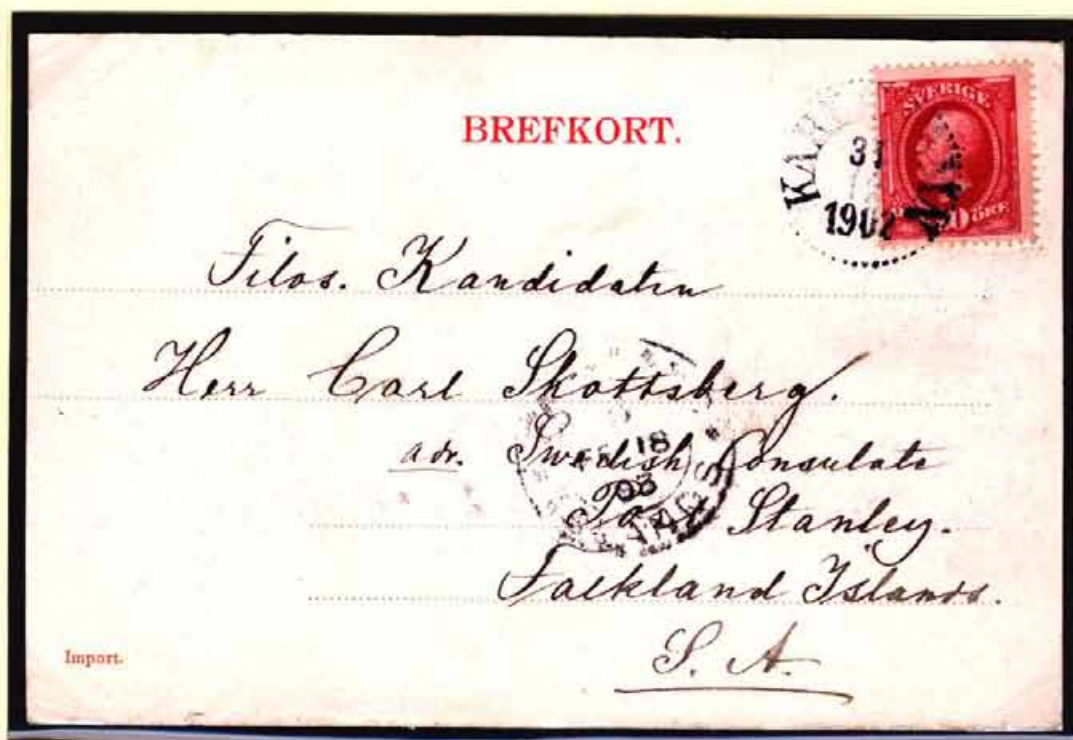 BREFKORT.
SVERIGE
ÖRE
31
1902
Filos. Kandidaten
Herr Carl Skottsberg.
adr. Swedish Consulate
Port Stanley.
Falkland Islands.
S. A.
18
03
Import.